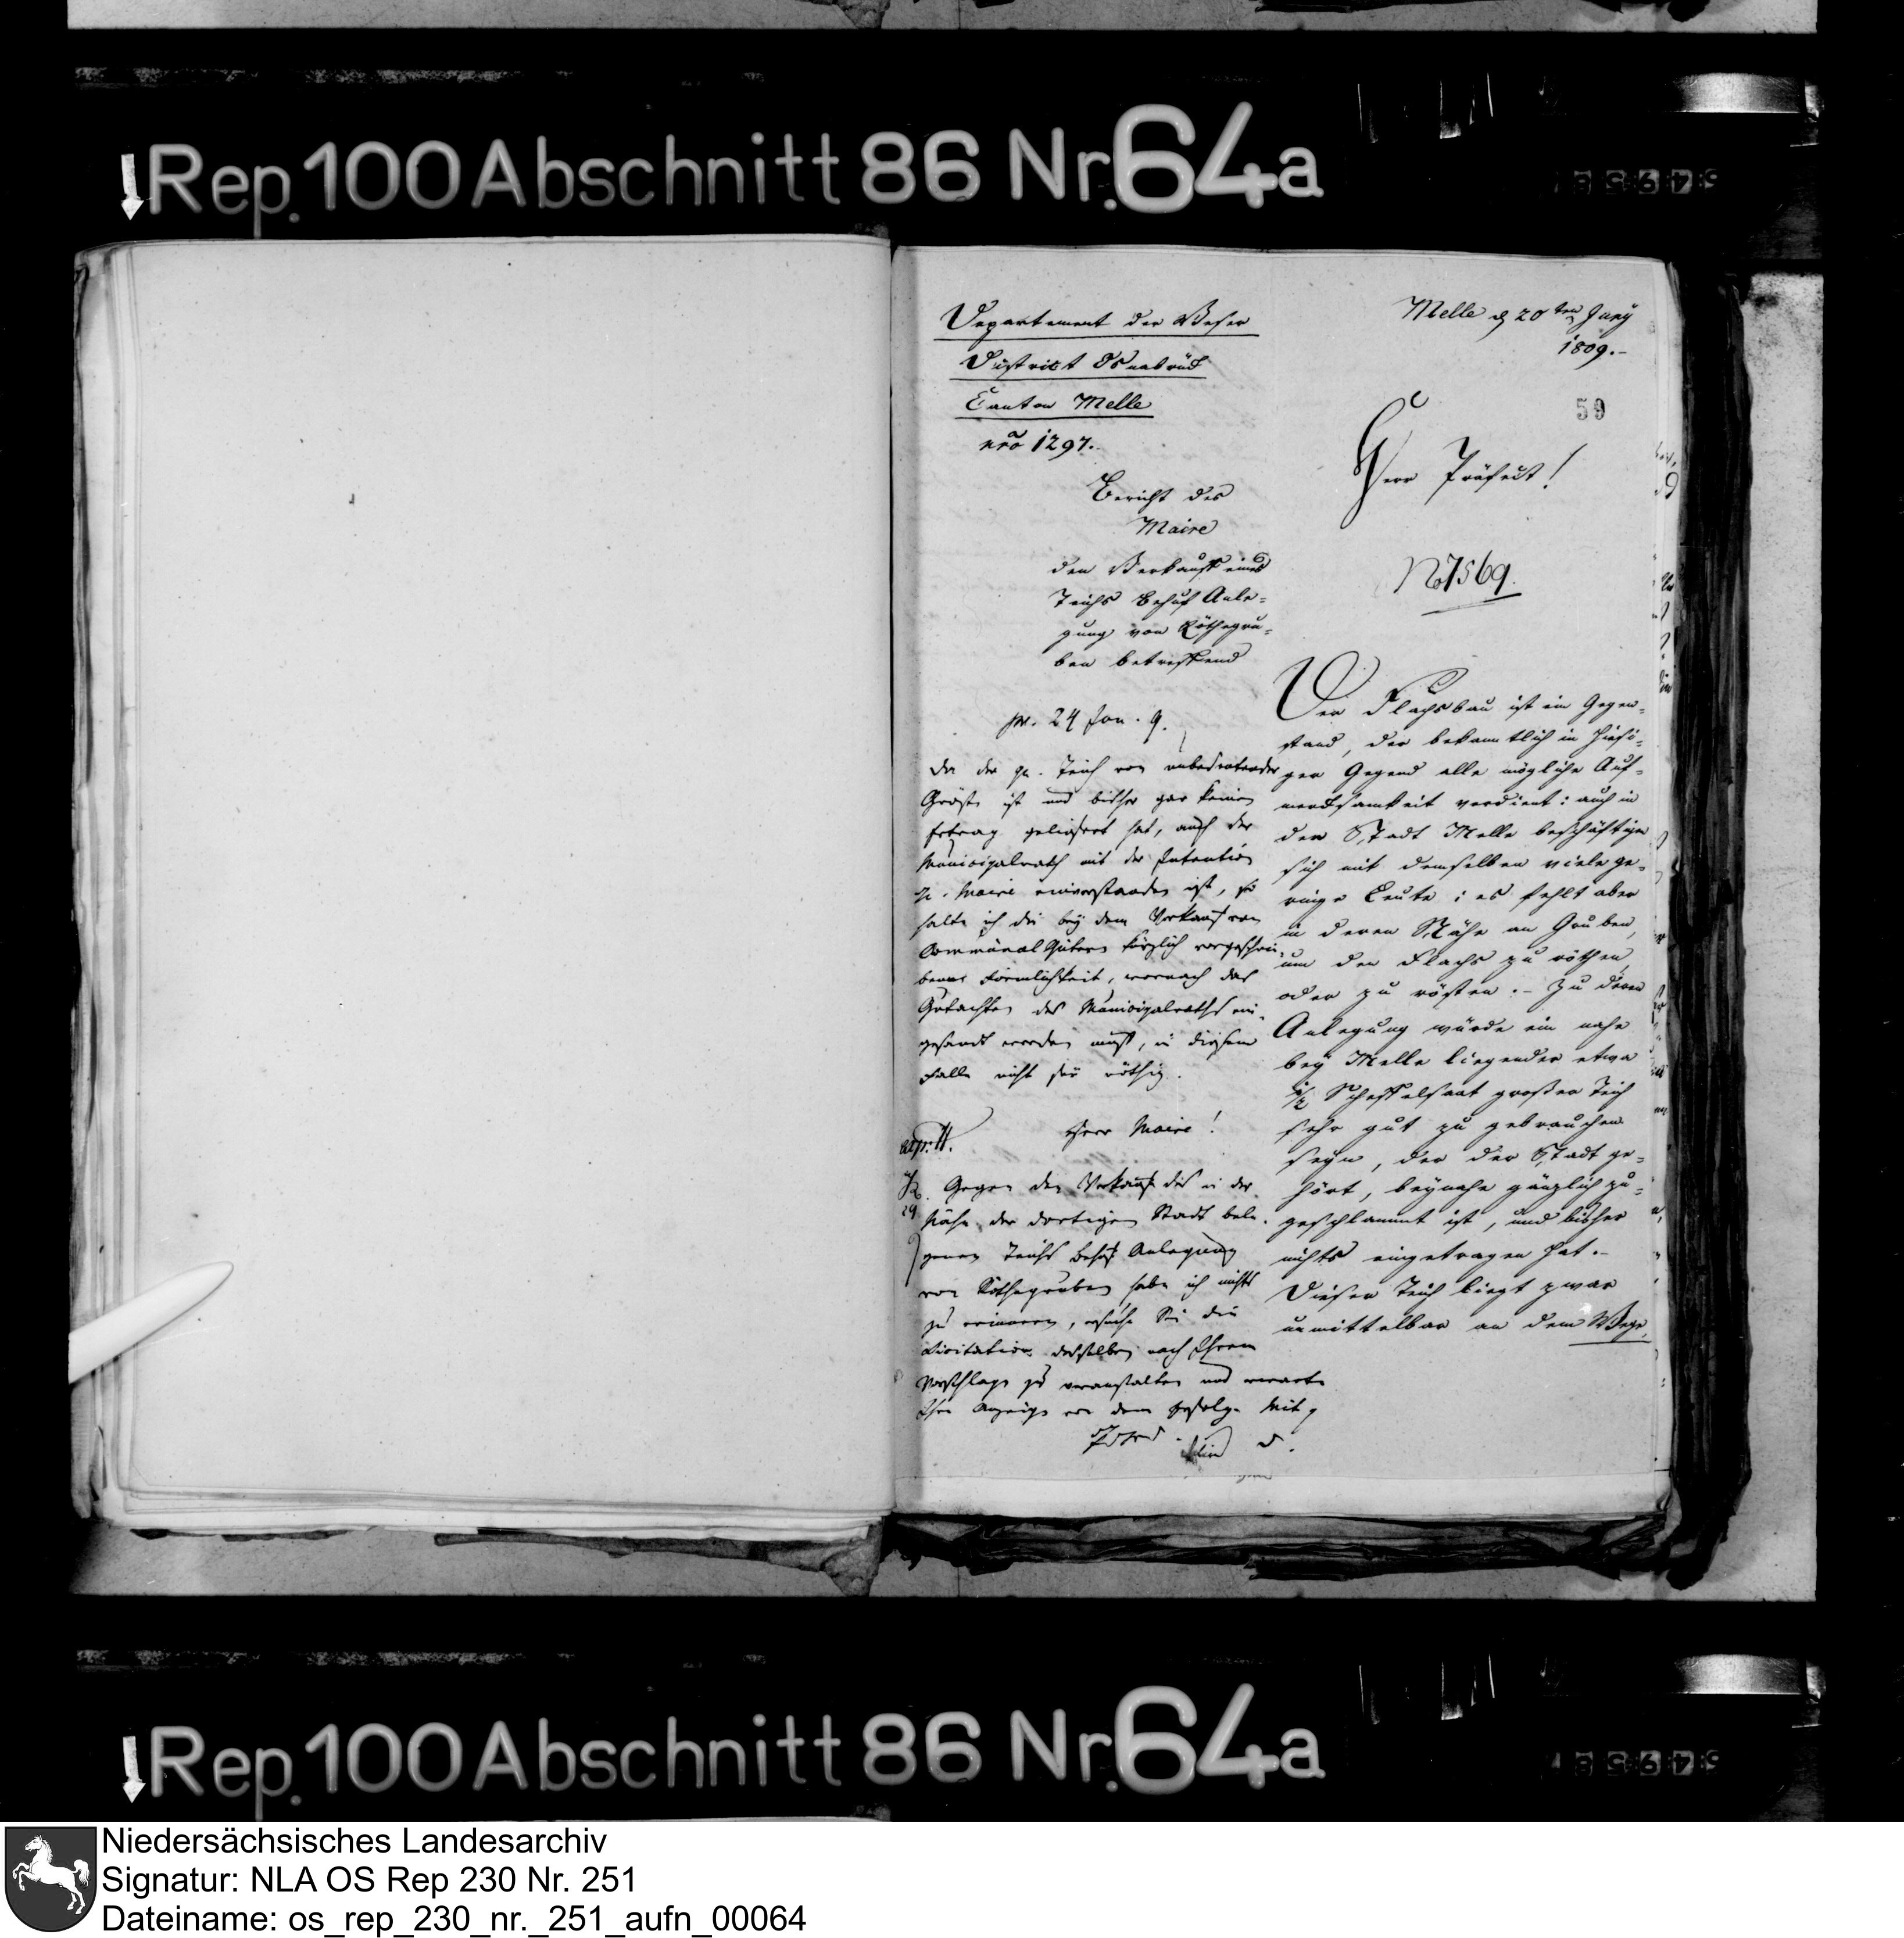 Rep. 100 Abschnitt 86 Nr. 64a
Departement der Weser
District Osnabrück
Canton Melle
nro 1297.
Bericht des
Maire
den Verkauff eines
Teichs Behuf Anle-
gung von Röthegru-
ben betreffend
pr. 24 Jun. 9.
Da der qu. Teich von unbedeutender
Größe ist und bisher gar keinen
Ertrag geliefert hat, auch der
Municipalrath mit der Intention
Hr. Maire einverstanden ist, so
halte ich die bey dem Verkauf von
Communal Gütern kürzlich vorgeschrie-
bene Förmlichkeit, wornach das
Gutachten des Municipalraths ein-
gesandt werden muß, in diesem
Falle nicht für nöthig.
Herr Maire!
Gegen den Verkauf des in der
Nähe der dortigen Stadt bele-
genen Teichs Behuf Anlegung
von Röthegruben habe ich nichts
zu erinnern, ersuche Sie die
Licitation desselben nach Ihrem
Vorschlage zu veranstalten und erwarte
Ihre Anzeige von dem Erfolge. Mit
Melle d 20ten Juny
1809.-
59
Herr Präfect!
No 7569.
Der Flachsbau ist ein Gegen-
stand, der bekanntlich in hiesi-
ger Gegend alle mögliche Auf-
merksamkeit verdient: auch in
der Stadt Melle beschäftigen
sich mit demselben viele ge-
ringe Leute; es fehlt aber
in deren Nähe an Gruben,
um den Flachs zu röthen,
oder zu rösten.- Zu deren
Anlegung würde ein nahe
bey Melle liegender etwa
1/2 Scheffelsaat großer Teich
sehr gut zu gebrauchen
seyn, der der Stadt ge-
hört, beynahe gänzlich zu-
geschlammt ist, und bisher
nichts eingetragen hat.-
Dieser Teich liegt zwar
unmittelbar an dem Wege,
Rep. 100 Abschnitt 86 Nr. 64a
Niedersächsisches Landesarchiv
Signatur: NLA OS Rep 230 Nr. 251
Dateiname: os_rep_230_nr._251_aufn_00064